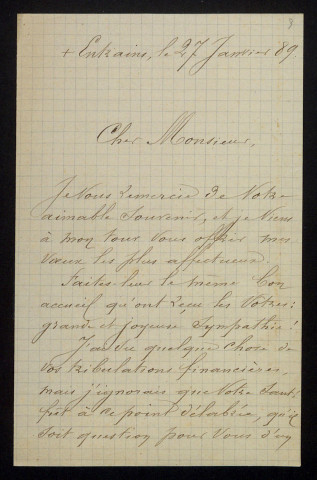 + Entrains, le 27 Janvier 89.
Cher Monsieur,
Je Vous remercie de Votre
aimable Souvenir, et je Viens
à mon tour Vous offrir mes
Vœux les plus affectueux.
Faites-leur le même bon
accueil qu'ont reçu les Vôtres:
grande et joyeuse Sympathie!
J'ai su quelque chose de
vos tribulations financières,
mais j'ignorais que Votre Santé
fût à ce point délabrée, qu'il
Soit question pour Vous d'un